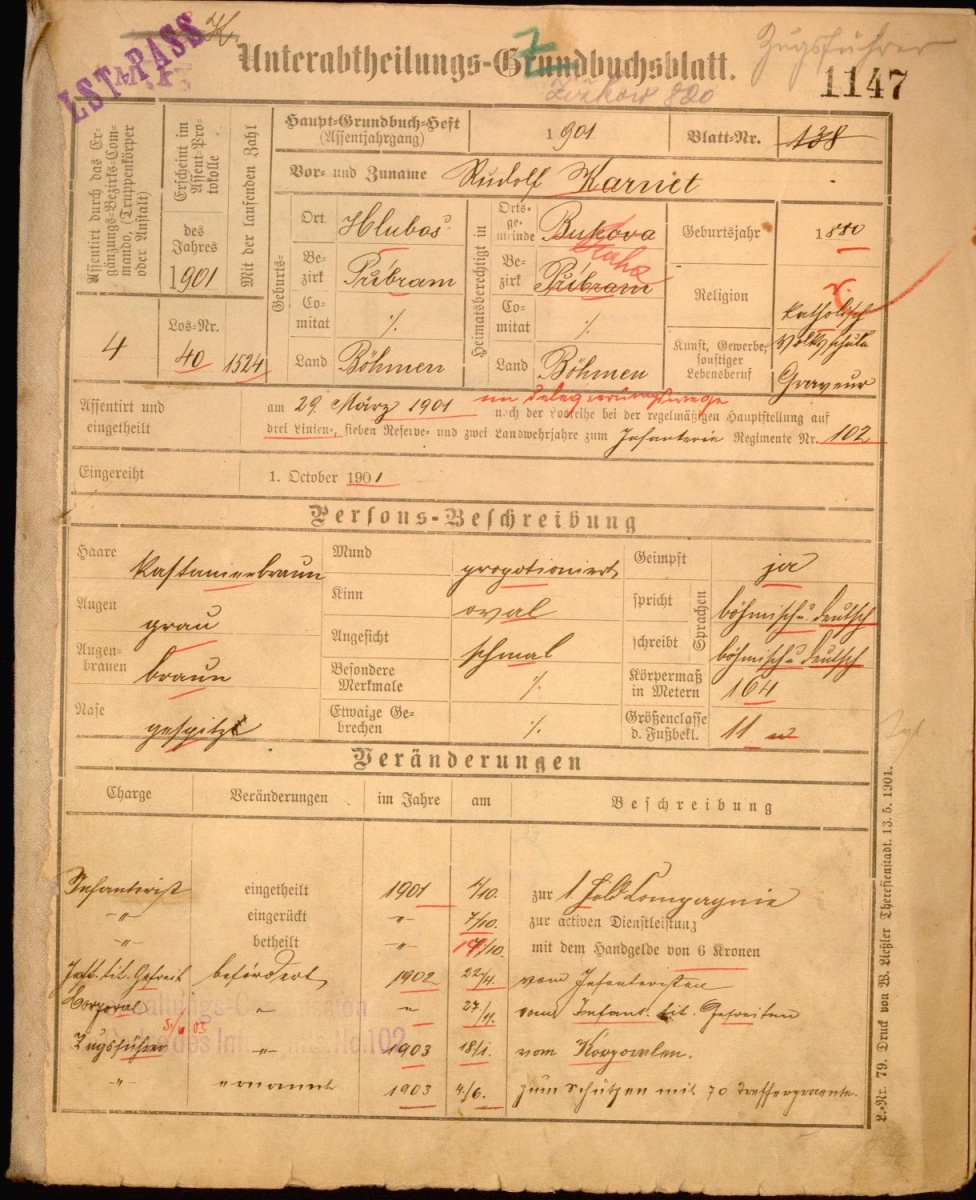 K.
LST-PASS
Unterabtheilungs-Grundbuchsblatt.
Z
Zugsführer
Žižkow 820
1147
Assentirt durch das Ergänzungs-Bezirks-Commando, (Truppenkörper oder Anstalt)
4
Erscheint im Assent-Protokolle
des Jahres
1901
Los-Nr.
40
Mit der laufenden Zahl
1524
Haupt-Grundbuch-Heft (Assentjahrgang) 1901 Blatt-Nr. 138
Vor- und Zuname Rudolf Karnet
Geburts-
Ort Hluboš
Bezirk Příbram
Comitat ·/.
Land Böhmen
Heimatsberechtigt in
Ortsgemeinde Bukova
Bezirk Příbram
Comitat ·/.
Land Böhmen
Geburtsjahr 1880
Religion r. katholisch
Kunst, Gewerbe, sonstiger Lebensberuf Volksschule
Graveur
Assentirt und eingetheilt
am 29. März 1901 im Delegierungswege nach der Losreihe bei der regelmäßigen Hauptstellung auf
drei Linien-, sieben Reserve- und zwei Landwehrjahre zum Infanterie Regimente Nr. 102
Eingereiht 1. October 1901
Persons-Beschreibung
Haare kastanienbraun
Augen grau
Augenbrauen braun
Nase gespitzt
Mund propotioniert
Kinn oval
Angesicht schmal
Besondere Merkmale ·/.
Etwaige Gebrechen ·/.
Geimpft ja
Sprachen
spricht böhmisch u. deutsch
schreibt böhmisch u deutsch
Körpermaß in Metern 164
Größenclasse d. Fußbekl. 11
Veränderungen
Charge Veränderungen im Jahre am Beschreibung
Infanterist eingetheilt 1901 1/10. zur 1 Feld Compagnie
-"- eingerückt -"- 7/10. zur activen Dienstleistung
-"- betheilt -"- /10. mit dem Handgelde von 6 Kronen
Inft. tit. Gefreit befördert 1902 22/4. vom Infanteristen
Corporal " " 27/11. vom Infant. tit. Gefreiten
Zugsführer -"- 1903 18/1. vom Korporalen.
-"- ernannt 1903 4./6. zum Schützen mit 70 Trefferprocente.
No. 102
L.-Nr. 79. Druck von W. Theresienstadt. 13. 5. 1901.